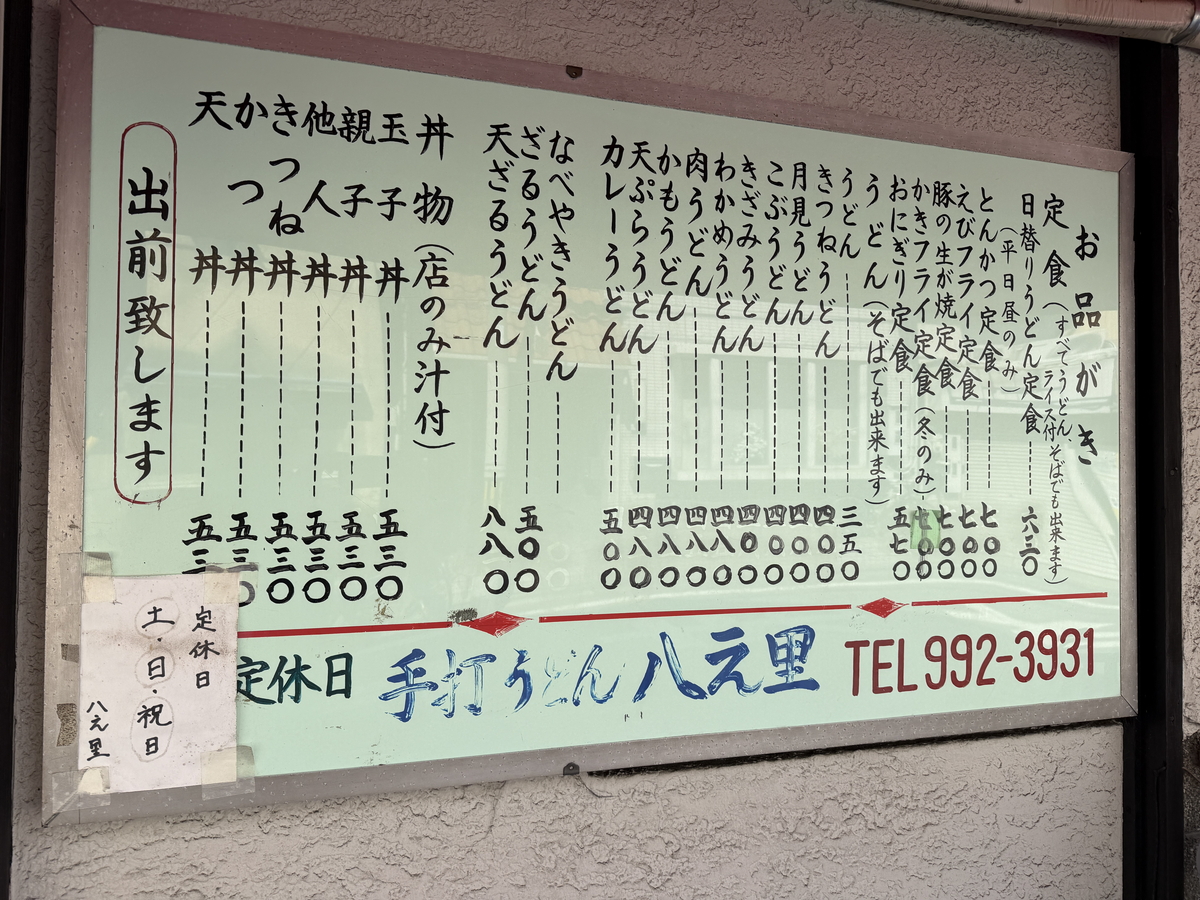 お品がき
定食(すべてうどん、ライス付 そばでも出来ます)
日替りうどん定食 六三〇
(平日昼のみ)
とんかつ定食 七〇〇
えびフライ定食 七〇〇
豚の生が焼定食 七〇〇
かきフライ定食(冬のみ) 七〇〇
おにぎり定食 五七〇
うどん(そばでも出来ます)
うどん 三五〇
きつねうどん 四〇〇
月見うどん 四〇〇
こぶうどん 四〇〇
きざみうどん 四〇〇
わかめうどん 四八〇
肉うどん 四八〇
かもうどん 四八〇
天ぷらうどん 四八〇
カレーうどん 五〇〇
なべやきうどん
ざるうどん 五〇〇
天ざるうどん 八八〇
丼物(店のみ汁付)
玉子丼 五三〇
親子丼 五三〇
他人丼 五三〇
きつね丼 五三〇
かつ丼 五三〇
天丼 五三
出前致します
定休日
手打うどん 八え里
TEL992-3931
定休日
土・日・祝日
八え里